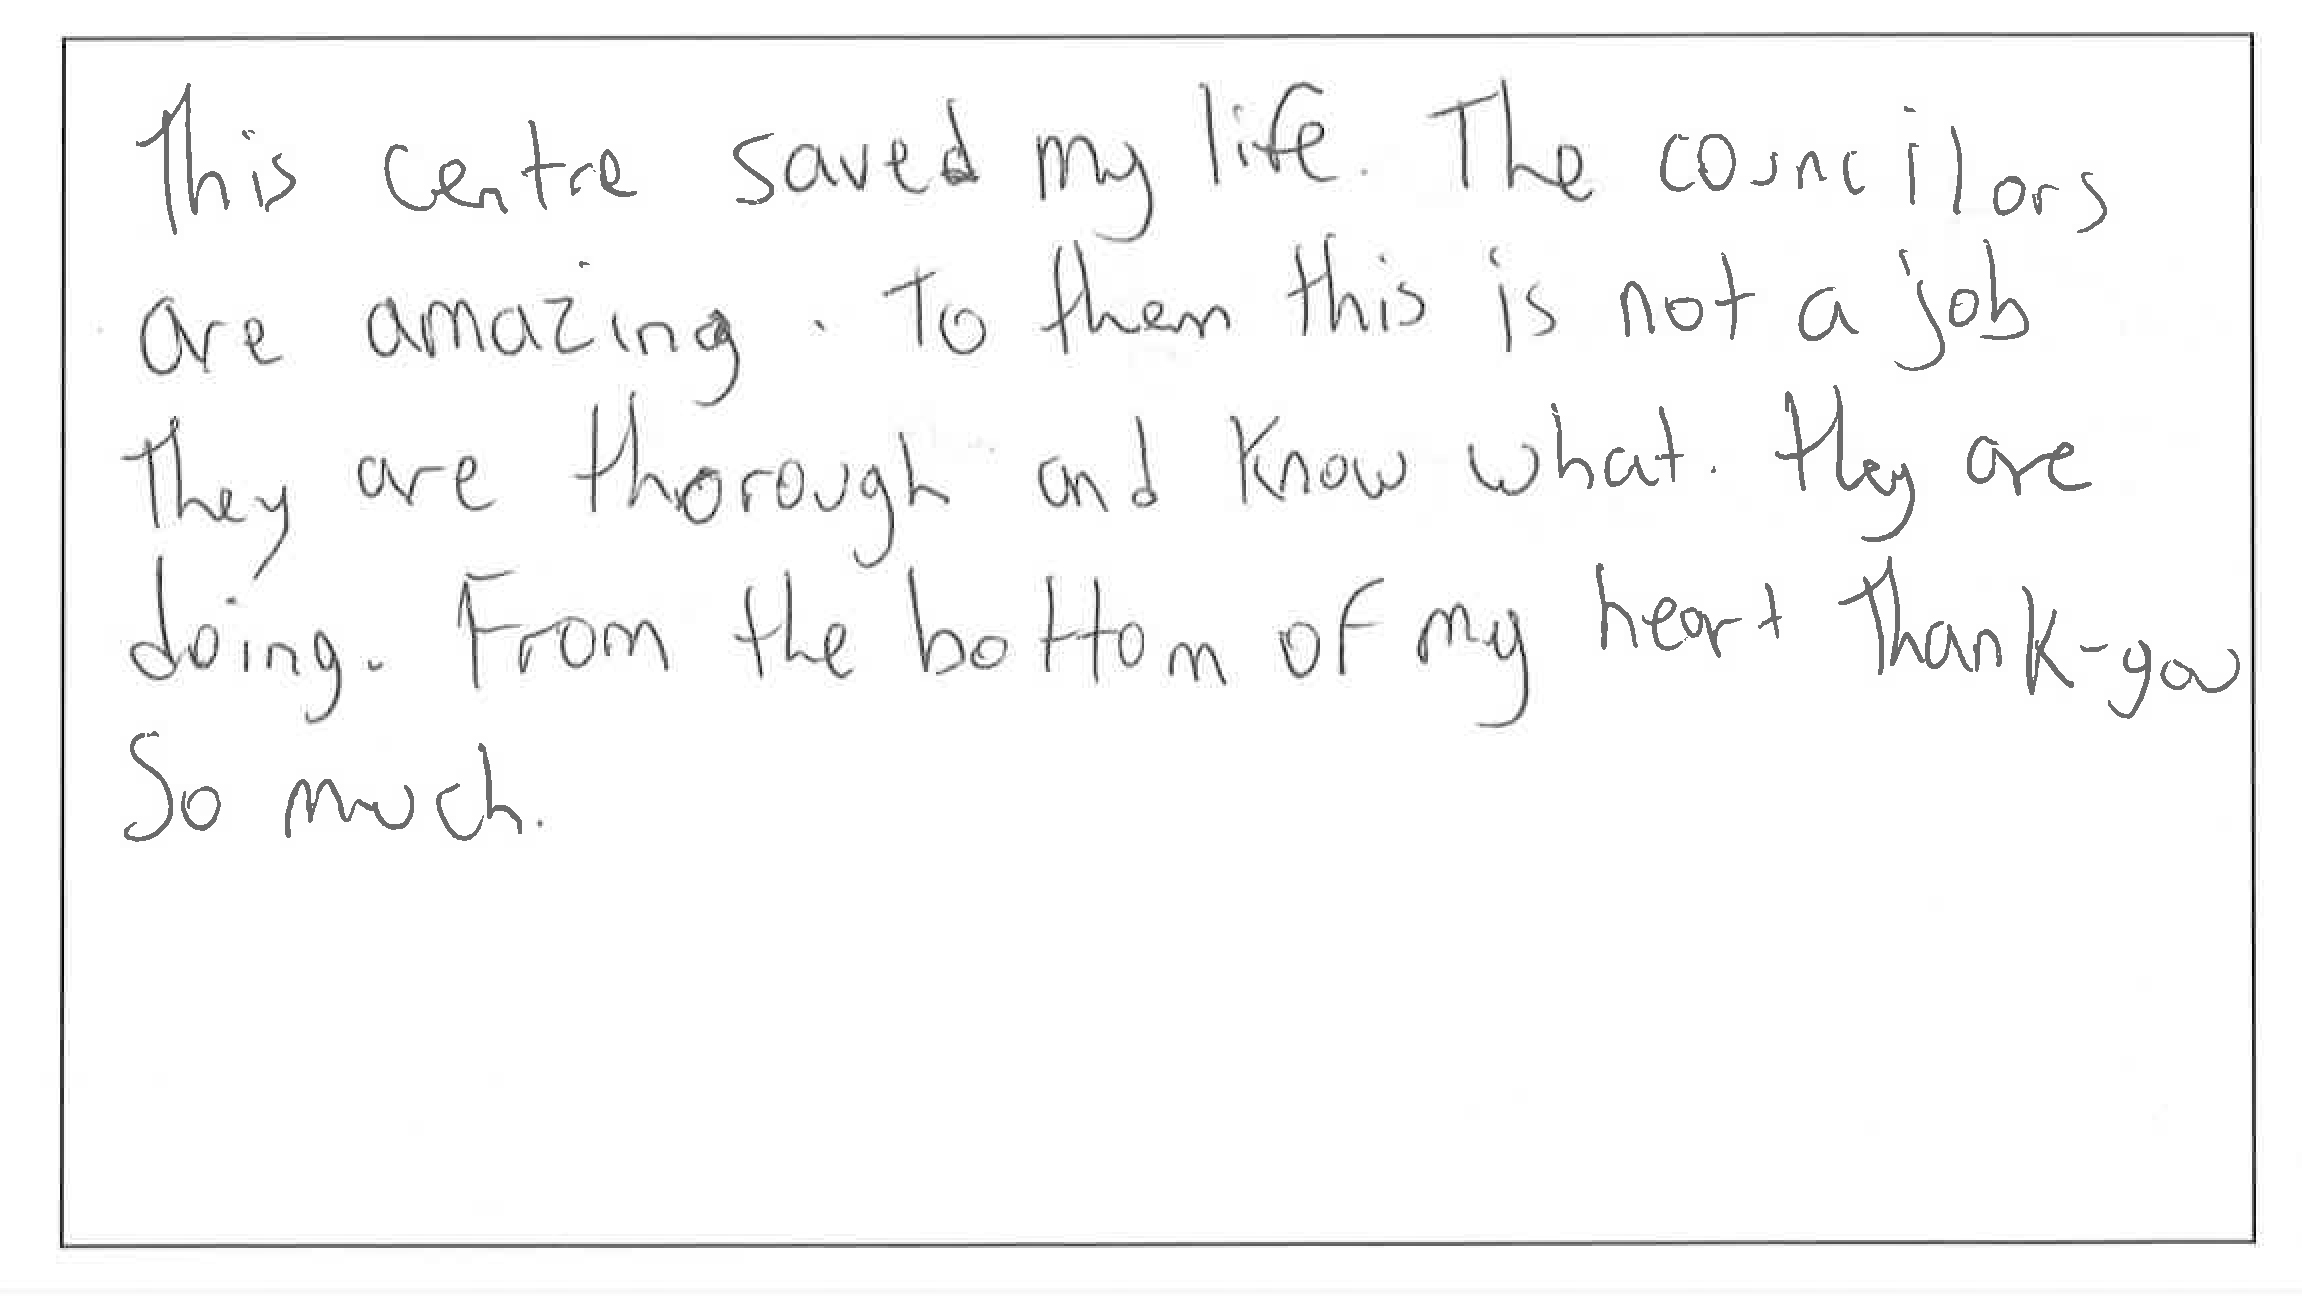 This centre saved my life. The councilors
are amazing. To them this is not a job
They are thorough and know what. they are
doing. From the bottom of my heart Thank-you
So much.